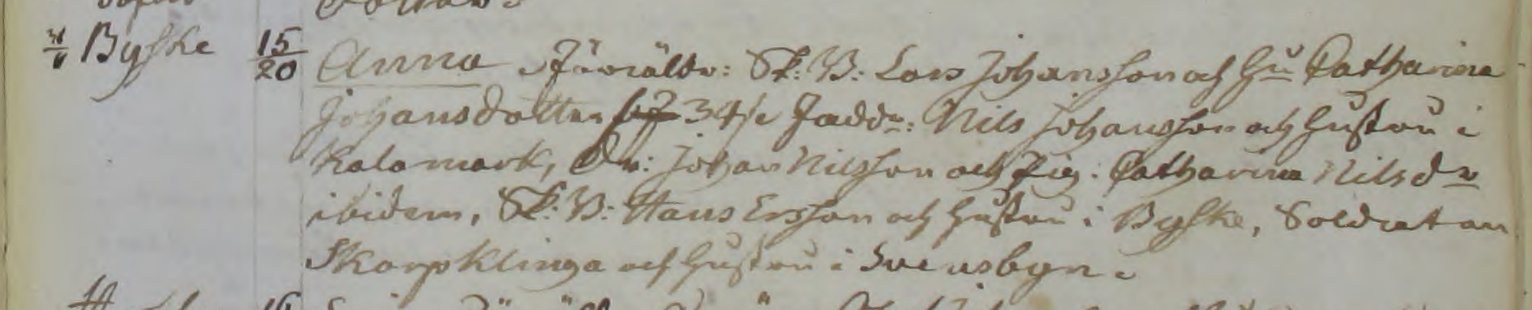 Byske 15/20 Anna Föräldr: Sk: B: Lars Johansson och Hu Catharina
Johansdotter 34/2 Faddr: Nils Johansson och hustru i
Kalamark, Dr: Johan Nilsson och Pig: Catharina Nilsdr
ibidem, Sk: B: Hans Ersson och hustru i Byske, Soldaten
Skarpklinga och hustru i Svensbyn